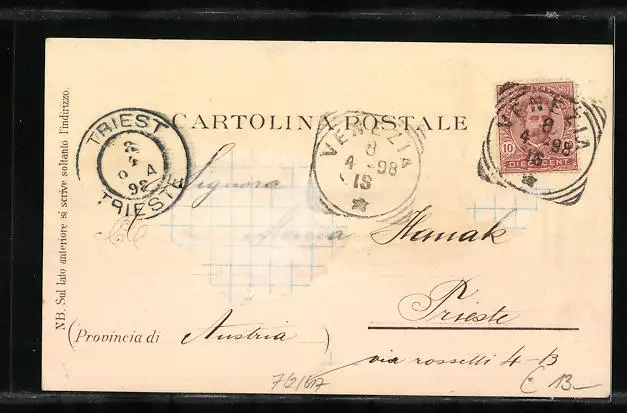 NB. Sul lato anteriore si scrive soltanto l'indirizzo.
CARTOLINA POSTALE
TRIEST
TRIESTE
VENEZIA
8
4 -98
1S
VENEZIA
8
4 -98
1S
10
DIECI CENT
Signora
Maria Hanak
Trieste
(Provincia di Austria )
via rosselli 4-B
7/2/617
€ 13-